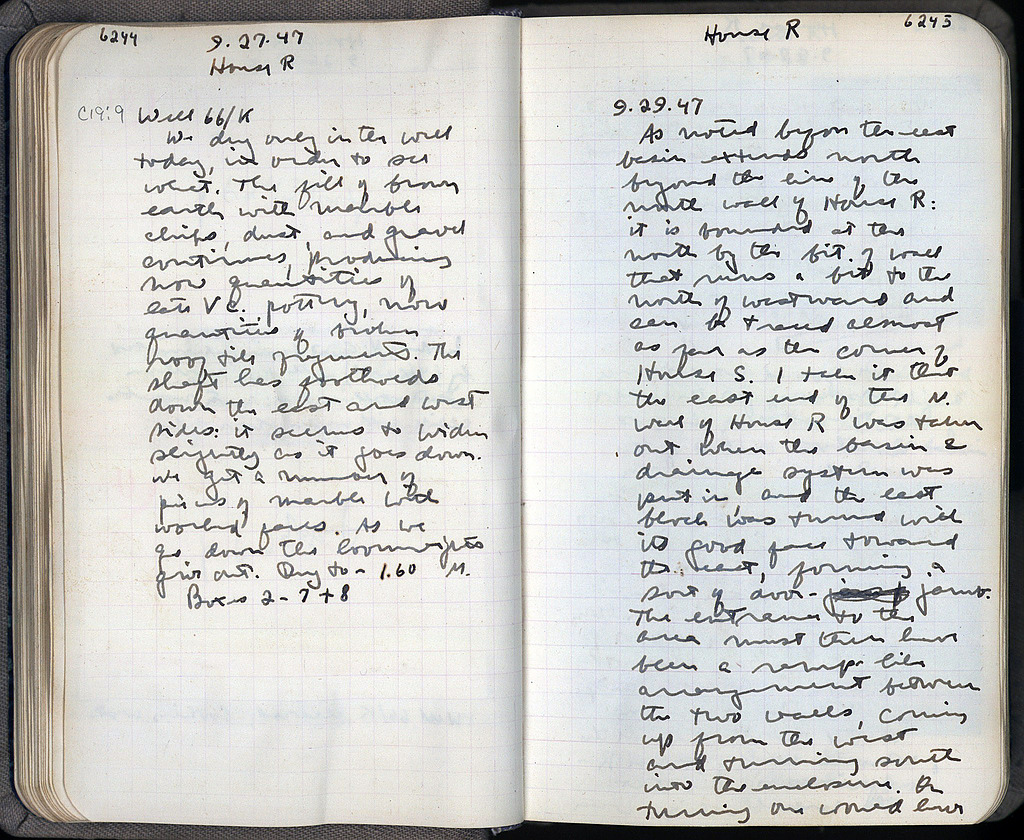 6244
9.27.47
House R
C19:9 Well 66/K
We dug only in the well
today, in order to see
what. The fill of brown
earth with marble
chips, dust, and gravel
continues, producing
now quantities of
late V c. pottery, now
quantities of broken
roof tile fragments. The
shaft has footholds
down the east and west
sides: it seems to widen
slightly as it goes down.
We get a number of
pieces of marble with
worked faces. As we
go down the loomweights
give out. Dug to - 1.60 M.
Boxes 2 - 7 + 8
6245
House R
9.29.47
As noted before the east
basin extends north
beyond the line of the
north wall of House R:
it is bounded at the
north by the bit of wall
that runs a bit to the
north of westward and
can be traced almost
as far as the corner of
House S. I take it that
the east end of the N.
wall of House R was taken
out when the basin &
drainage system was
put in and the east
block was turned with
its good face toward
the east, forming a
sort of door- jamb.
The entrance to the
area must then have
been a ramp-like
arrangement between
the two walls, coming
up from the west
and turning south
into the enclosure. On
turning one would have